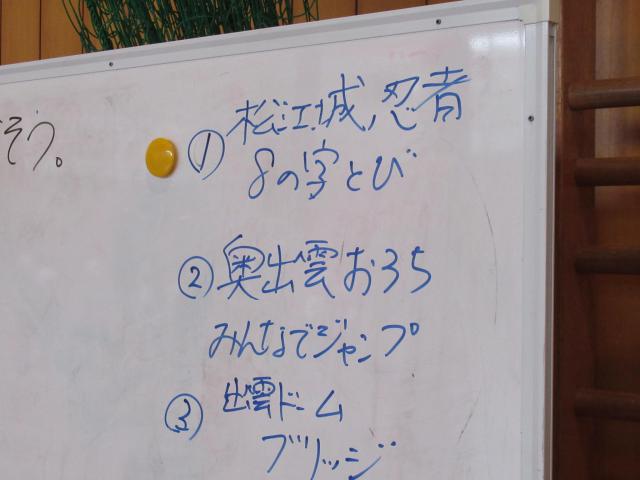 そう。
① 松江城忍者
8の字とび
② 奥出雲おろち
みんなでジャンプ
③ 出雲ドーム
ブリッジ